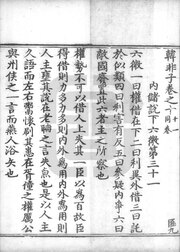 韓非子卷之十
內儲說下六微第三十一
六微一曰權借在下二曰利異外借三曰託
於似類四曰利害有反五曰參疑內爭六曰
敵國廢置此六者主之所察也
權勢不可以借人上失其一臣以為百故臣
得借則力多力多則內外為用內外為用則
人主壅其說在老聃之言失魚也是以人主
久語而左右鬻懷刷其患在胥僮之諫厲公
與州侯之一言而燕人浴矢也